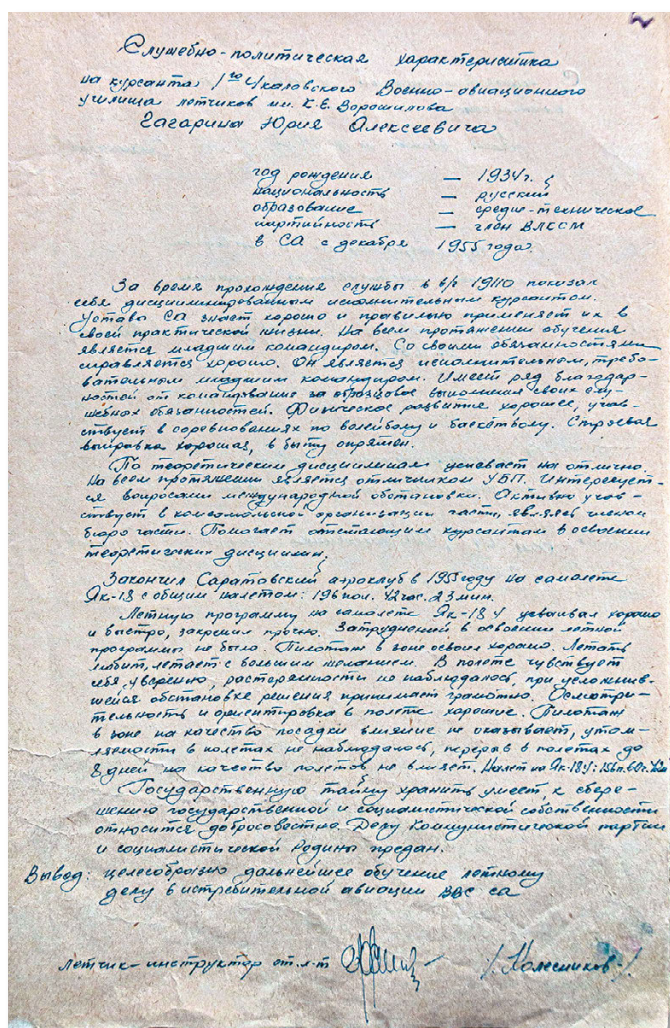 Служебно-политическая характеристика
на курсанта 1го Чкаловского Военно-авиационного
училища летчиков им. К.Е. Ворошилова
Гагарина Юрия Алексеевича
год рождения — 1934г.
национальность — русский
образование — средн-техническое
партийность — член ВЛКСМ
в СА с декабря 1955 года.
За время прохождения службы в в/ч 19110 показал
себя дисциплинированным исполнительным курсантом.
Уставы СА знает хорошо и правильно применяет их в
своей практической жизни. На всем протяжении обучения
является младшим командиром. Со своими обязанностями
справляется хорошо. Он является исполнительным, требо-
вательным младшим командиром. Имеет ряд благодар-
ностей от командования за образцовое выполнение своих слу-
жебных обязанностей. Физическое развитие хорошее, учав-
ствует в соревнованиях по волейболу и баскетболу. Строевая
выправка хорошая, в быту опрятен.
По теоретическим дисциплинам успевает на отлично.
На всем протяжении является отличником УБП. Интересует-
ся вопросами международной обстановки. Активно учав-
ствует в комсомольской организации части, являясь членом
бюро части. Помогает отстающим курсантам в освоении
теоретических дисциплин.
Закончил Саратовский аэроклуб в 1955 году на самолете
Як-18 с общим налетом: 196 пол. 42 час. 23 мин.
Летную программу на самолете Як-18 У усваивал хорошо
и быстро, закрепил прочно. Затруднений в освоении летной
программы не было. Пилотаж в зоне освоил хорошо. Летать
любит, летает с большим желанием. В полете чувствует
себя уверенно, растерянности не наблюдалось, при усложнив-
шейся обстановке решения принимает грамотно. Осмотри-
тельность и ориентировка в полете хорошие. Пилотаж
в зоне на качество посадки влияние не оказывает, утом-
ляемости в полетах не наблюдалось, перерыв в полетах до
8 дней на качество полетов не влияет. Налет на Як-18У: 156п.
Государственную тайну хранить умеет, к сбере-
жению государственной и социалистической собственности
относится добросовестно. Делу Коммунистической партии
и социалистической Родины предан.
Вывод: целесообразно дальнейшее обучение летному
делу в истребительной авиации ВВС СА
Летчик-инструктор ст. л-т /Колесников/